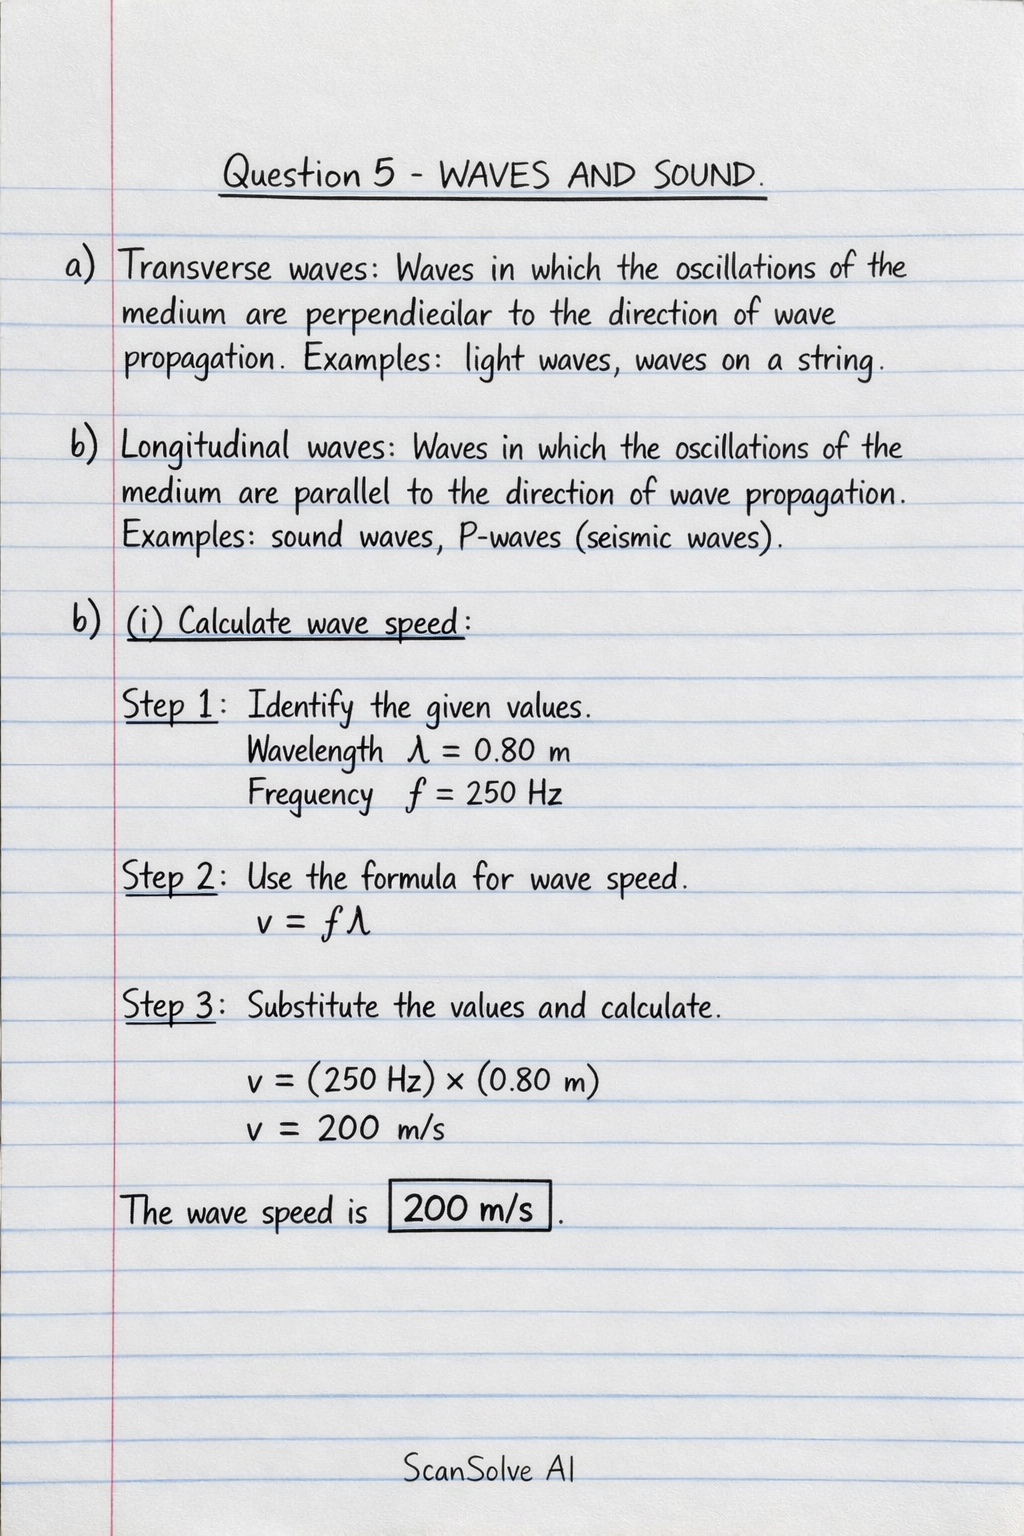 Question 5 - WAVES AND SOUND.
a) Transverse waves: Waves in which the oscillations of the
medium are perpendiecilar to the direction of wave
propagation. Examples: light waves, waves on a string.
b) Longitudinal waves: Waves in which the oscillations of the
medium are parallel to the direction of wave propagation.
Examples: sound waves, P-waves (seismic waves).
b) (i) Calculate wave speed:
Step 1: Identify the given values.
Wavelength λ = 0.80 m
Freguency f = 250 Hz
Step 2: Use the formula for wave speed.
v = fλ
Step 3: Substitute the values and calculate.
v = (250 Hz) × (0.80 m)
v = 200 m/s
The wave speed is 200 m/s.
ScanSolve AI